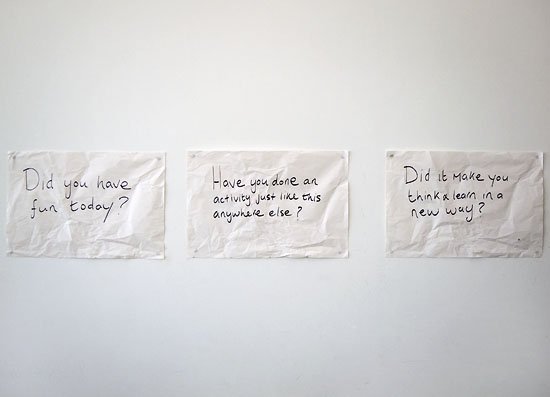 Did you have
fun today?
Have you done an
activity just like this
anywhere else?
Did it make you
think & learn in a
new way?